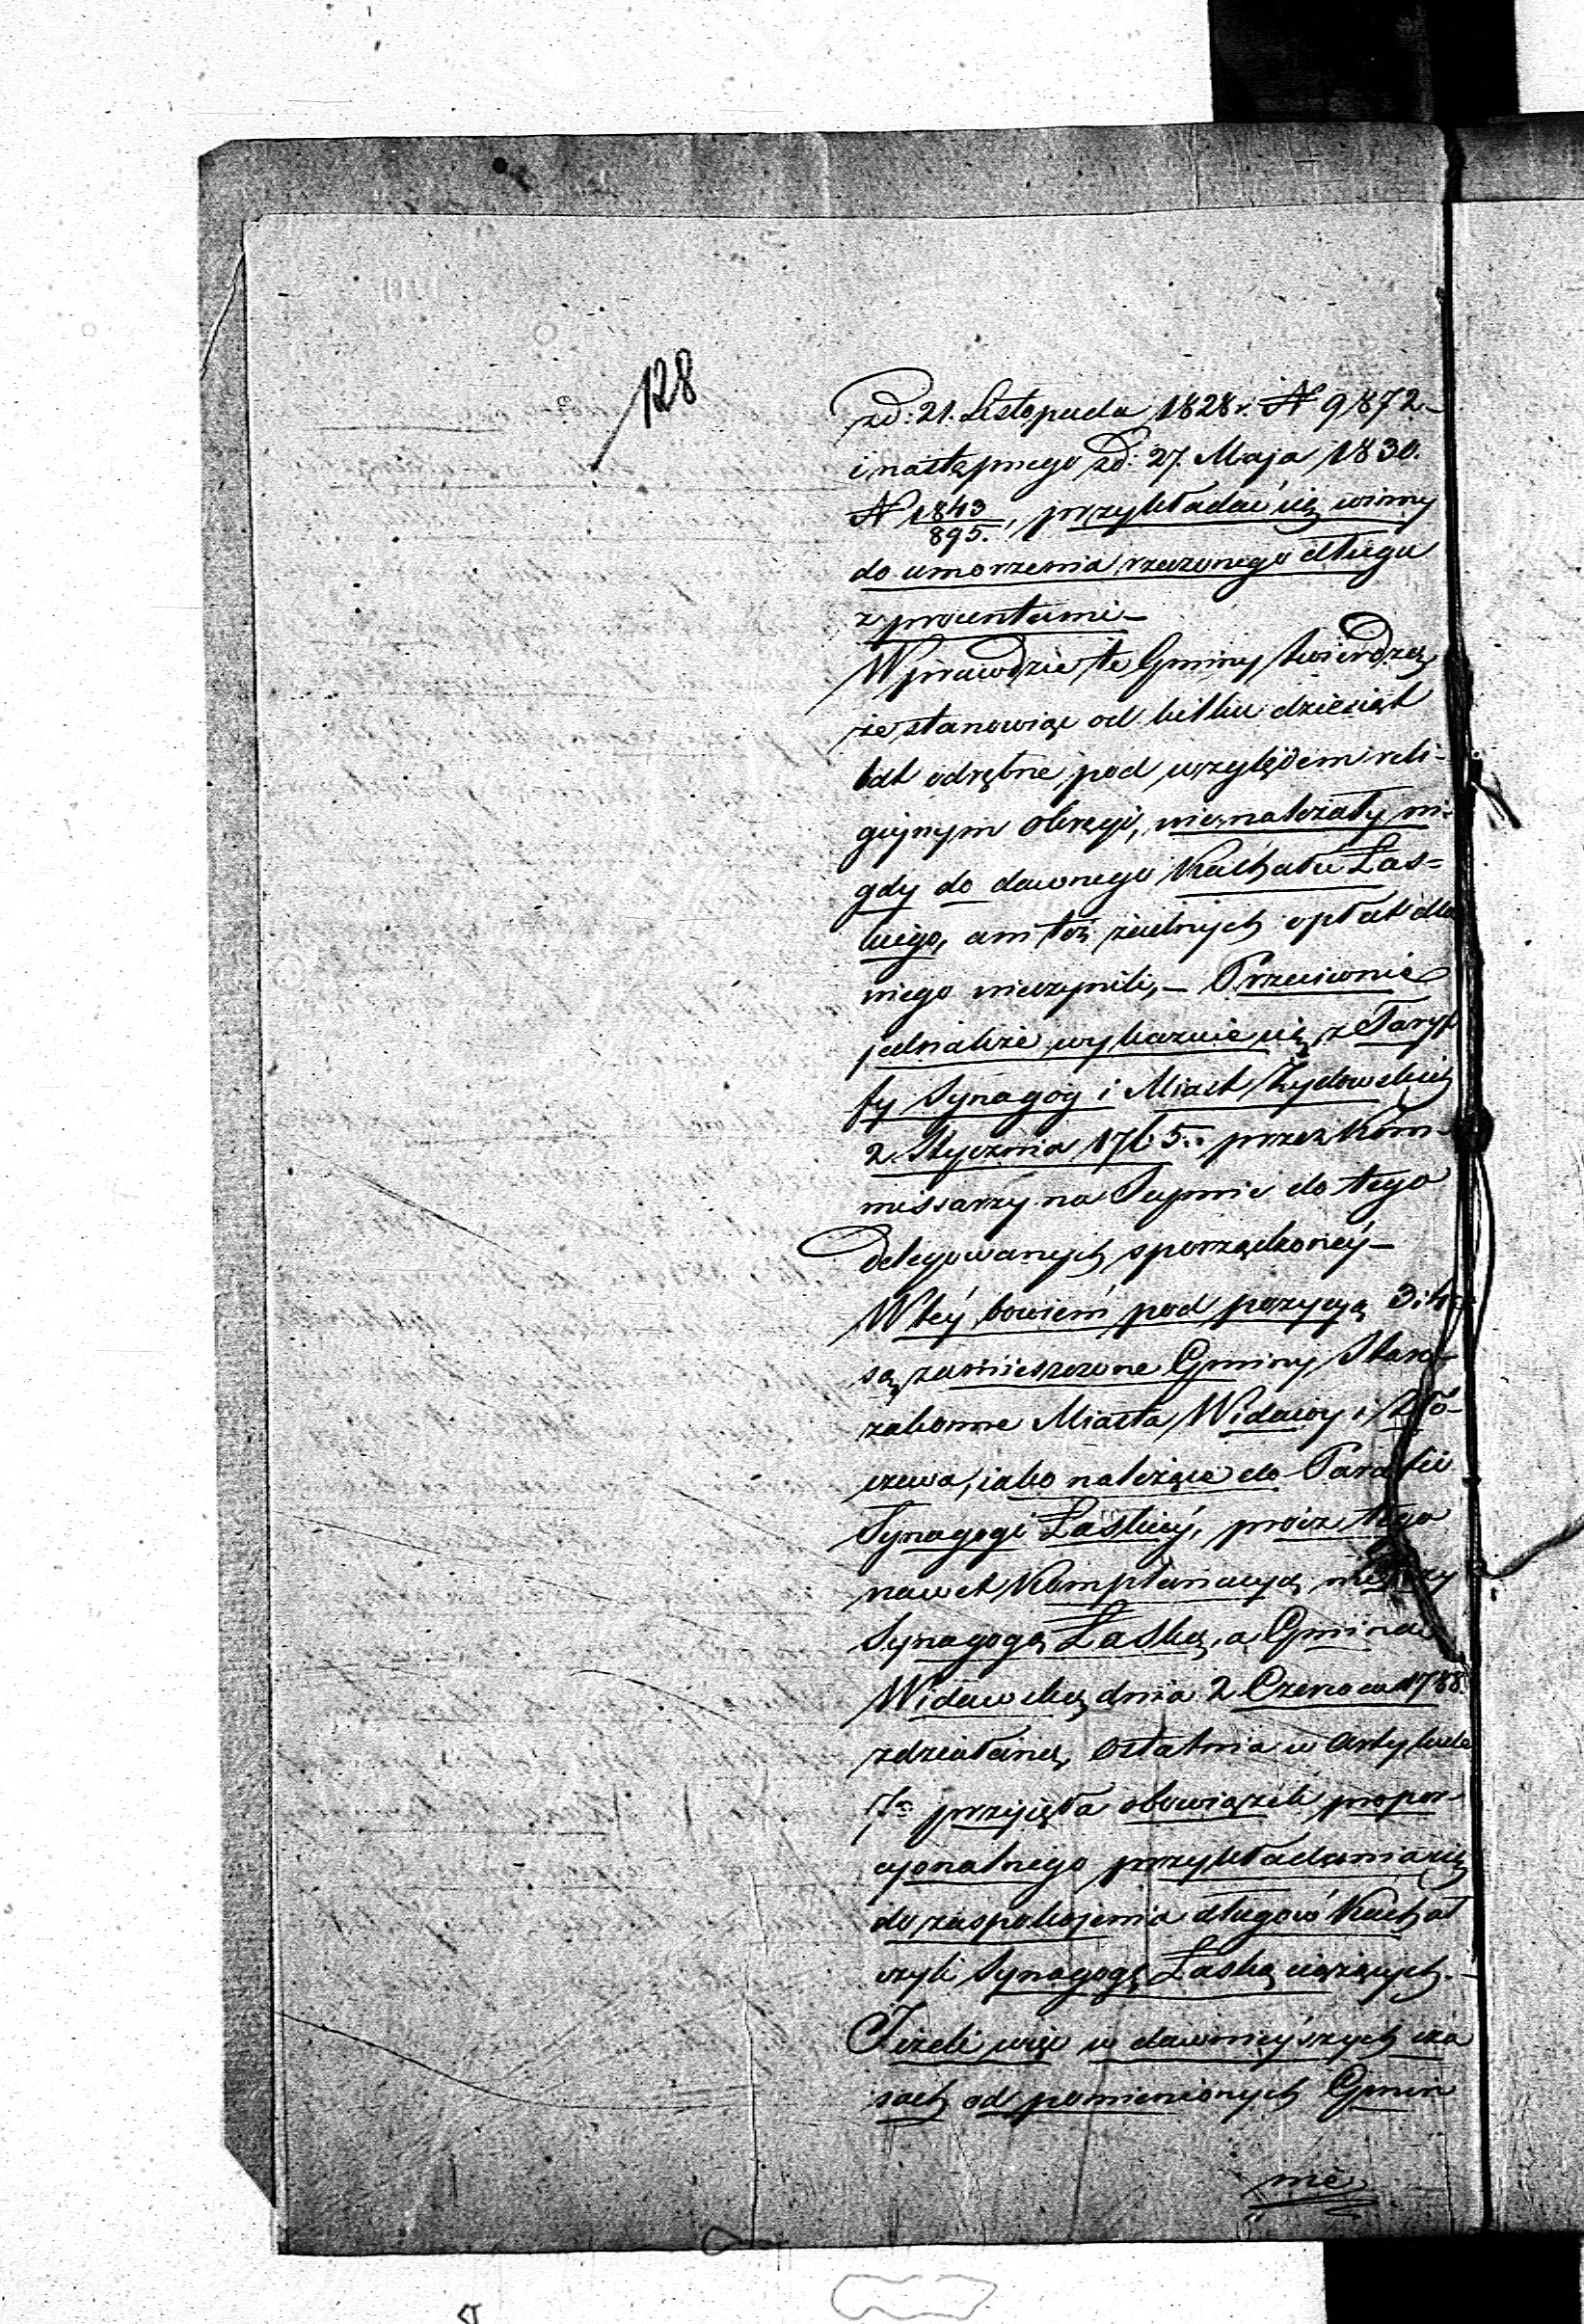 128
zd: 21. Listopada 1828 r. N 9872.
i następnego zd: 27. Maja 1830.
N 1843/895., przykładać się winny
do umorzenia rzeczonego długu
z procentami –
Wprawdzie te Gminy twierdzą,
że stanowiąc od kilku dziesiąt
lat odrębne pod względem reli-
gijnym okręgi, nienależały ni-
gdy do dawnego Kachału Łas-
kiego, ani też żadnych opłat dla
niego nieczynili, – Przeciwnie
jednakże wykazuie się z Taryf-
fy Synagog i Miast Żydowskich
2 Stycznia 1765. przez Kom-
missarzy na Seymie do tego
delegowanych sporządzonéy –
W téy bowiem pod pozycyą 3 i 4
są zamieszczone Gminy Staro-
zakonne Miasta Widawy i
czewa, iako należące do Parafii
Synagogi Łaskiéy, prócz tego
nawet Komplanacyą między
Synagogą Łaską, a Gminą
Widawską dnia 2 Czerwca 1788.
zdziałaną, ostatnia w Artykule
7º przyięła obowiązek propor-
cyonalnego przykładania się
do zaspokojenia długów Kachał
czyli Synagogę Łaską ciążących. –
Jeżeli więc w dawniéyszych cza
sach od pomienionych Gmin
nie